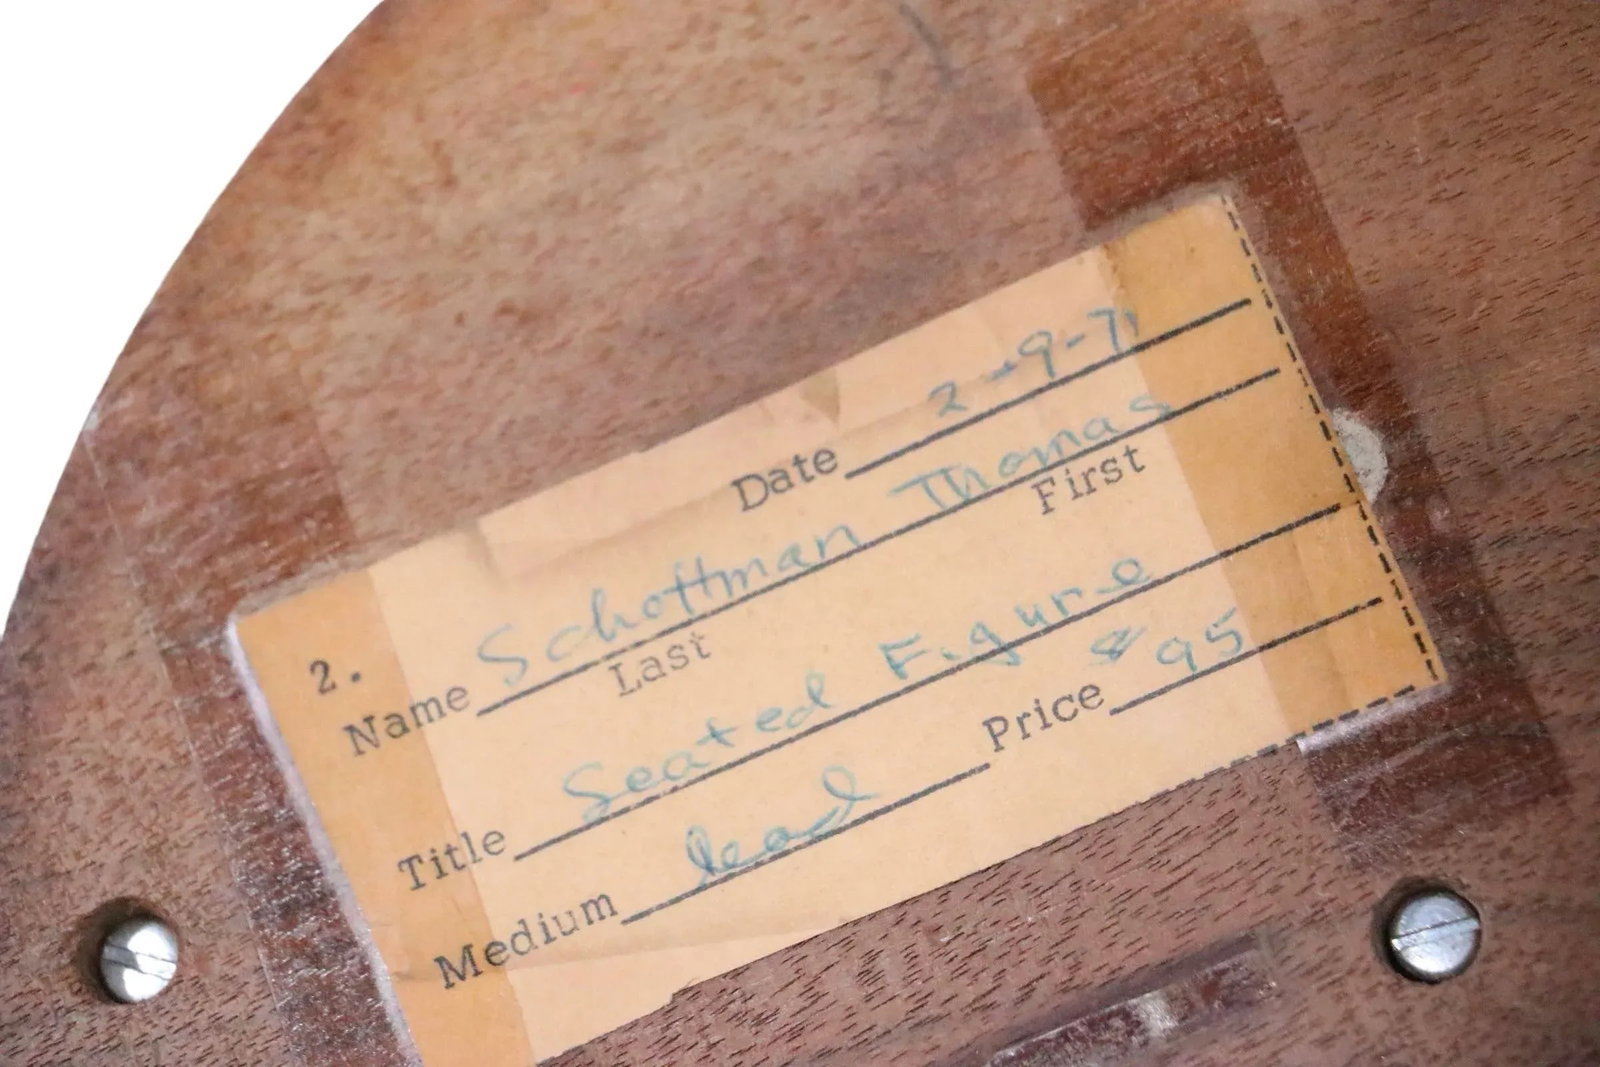 Date 2-9-71
2.
Name Schoffman Thomas
Last First
Title Seated Figure
Medium lead Price $95